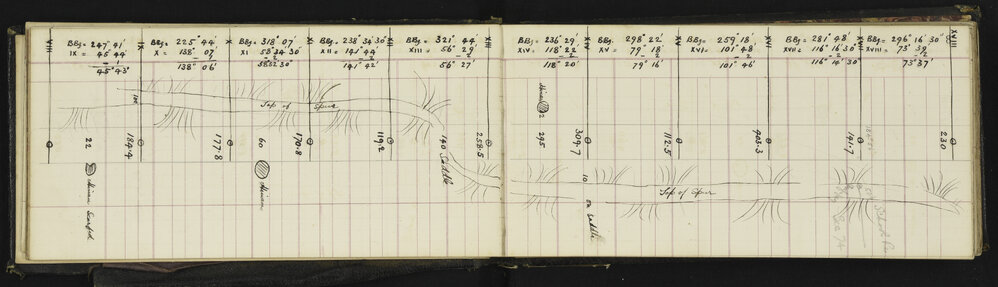 VIII
BBg = 247° 41'
IX = 45° 44'
- 1
45° 43'
IX
BBg = 225° 44'
X = 138° 07'
- 1
138° 06'
X
BBg = 318° 07'
XI 58° 34' 30"
- 2
58° 32' 30"
XI
BBg = 238° 34' 30"
XII = 141° 44'
- 2
141° 42'
XII
BBg = 321° 44'
XIII = 56° 29'
- 2
56° 27'
XIII
BBg = 236° 29'
XIV = 118° 22'
- 2
118° 20'
XIV
BBg = 298° 22'
XV = 79° 18'
- 2
79° 16'
XV
BBg = 259° 18'
XVI = 101° 48'
- 2
101° 46'
XVI
BBg = 281° 48'
XVII = 116° 16' 30"
- 2
116° 14' 30"
XVII
BBg = 296° 16' 30"
XVIII = 73° 39'
- 2
73° 37'
XVIII
Top of Spur
22
184.4
177.8
60
170.8
119.2
140 Saddle
258.5
295
309.7
10
on saddle
112.5
403.3
141.7
230
Top of Spur